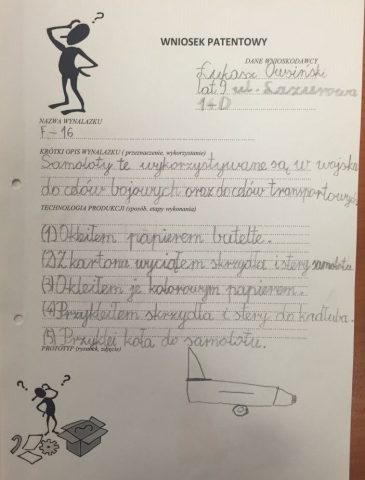 WNIOSEK PATENTOWY
DANE WNIOSKODAWCY
Łukasz Owsiński
lat 9 ul. Lazurowa
1+D
NAZWA WYNALAZKU
F-16
KRÓTKI OPIS WYNALAZKU ( przeznaczenie, wykorzystanie)
Samoloty te wykorzystywane są w wojsku
do celów bojowych oraz do celów transportowych
TECHNOLOGIA PRODUKCJI (sposób, etapy wykonania)
(1) Okleiłem papierem butelkę.
(2) Z kartona wyciąłem skrzydła i stery samolotu
(3) Okleiłem je kolorowym papierem.
(4) Przykleiłem skrzydła i stery do kadłuba.
(5) Przyklei koła do samolotu.
PROTOTYP (rysunek, zdjęcie)